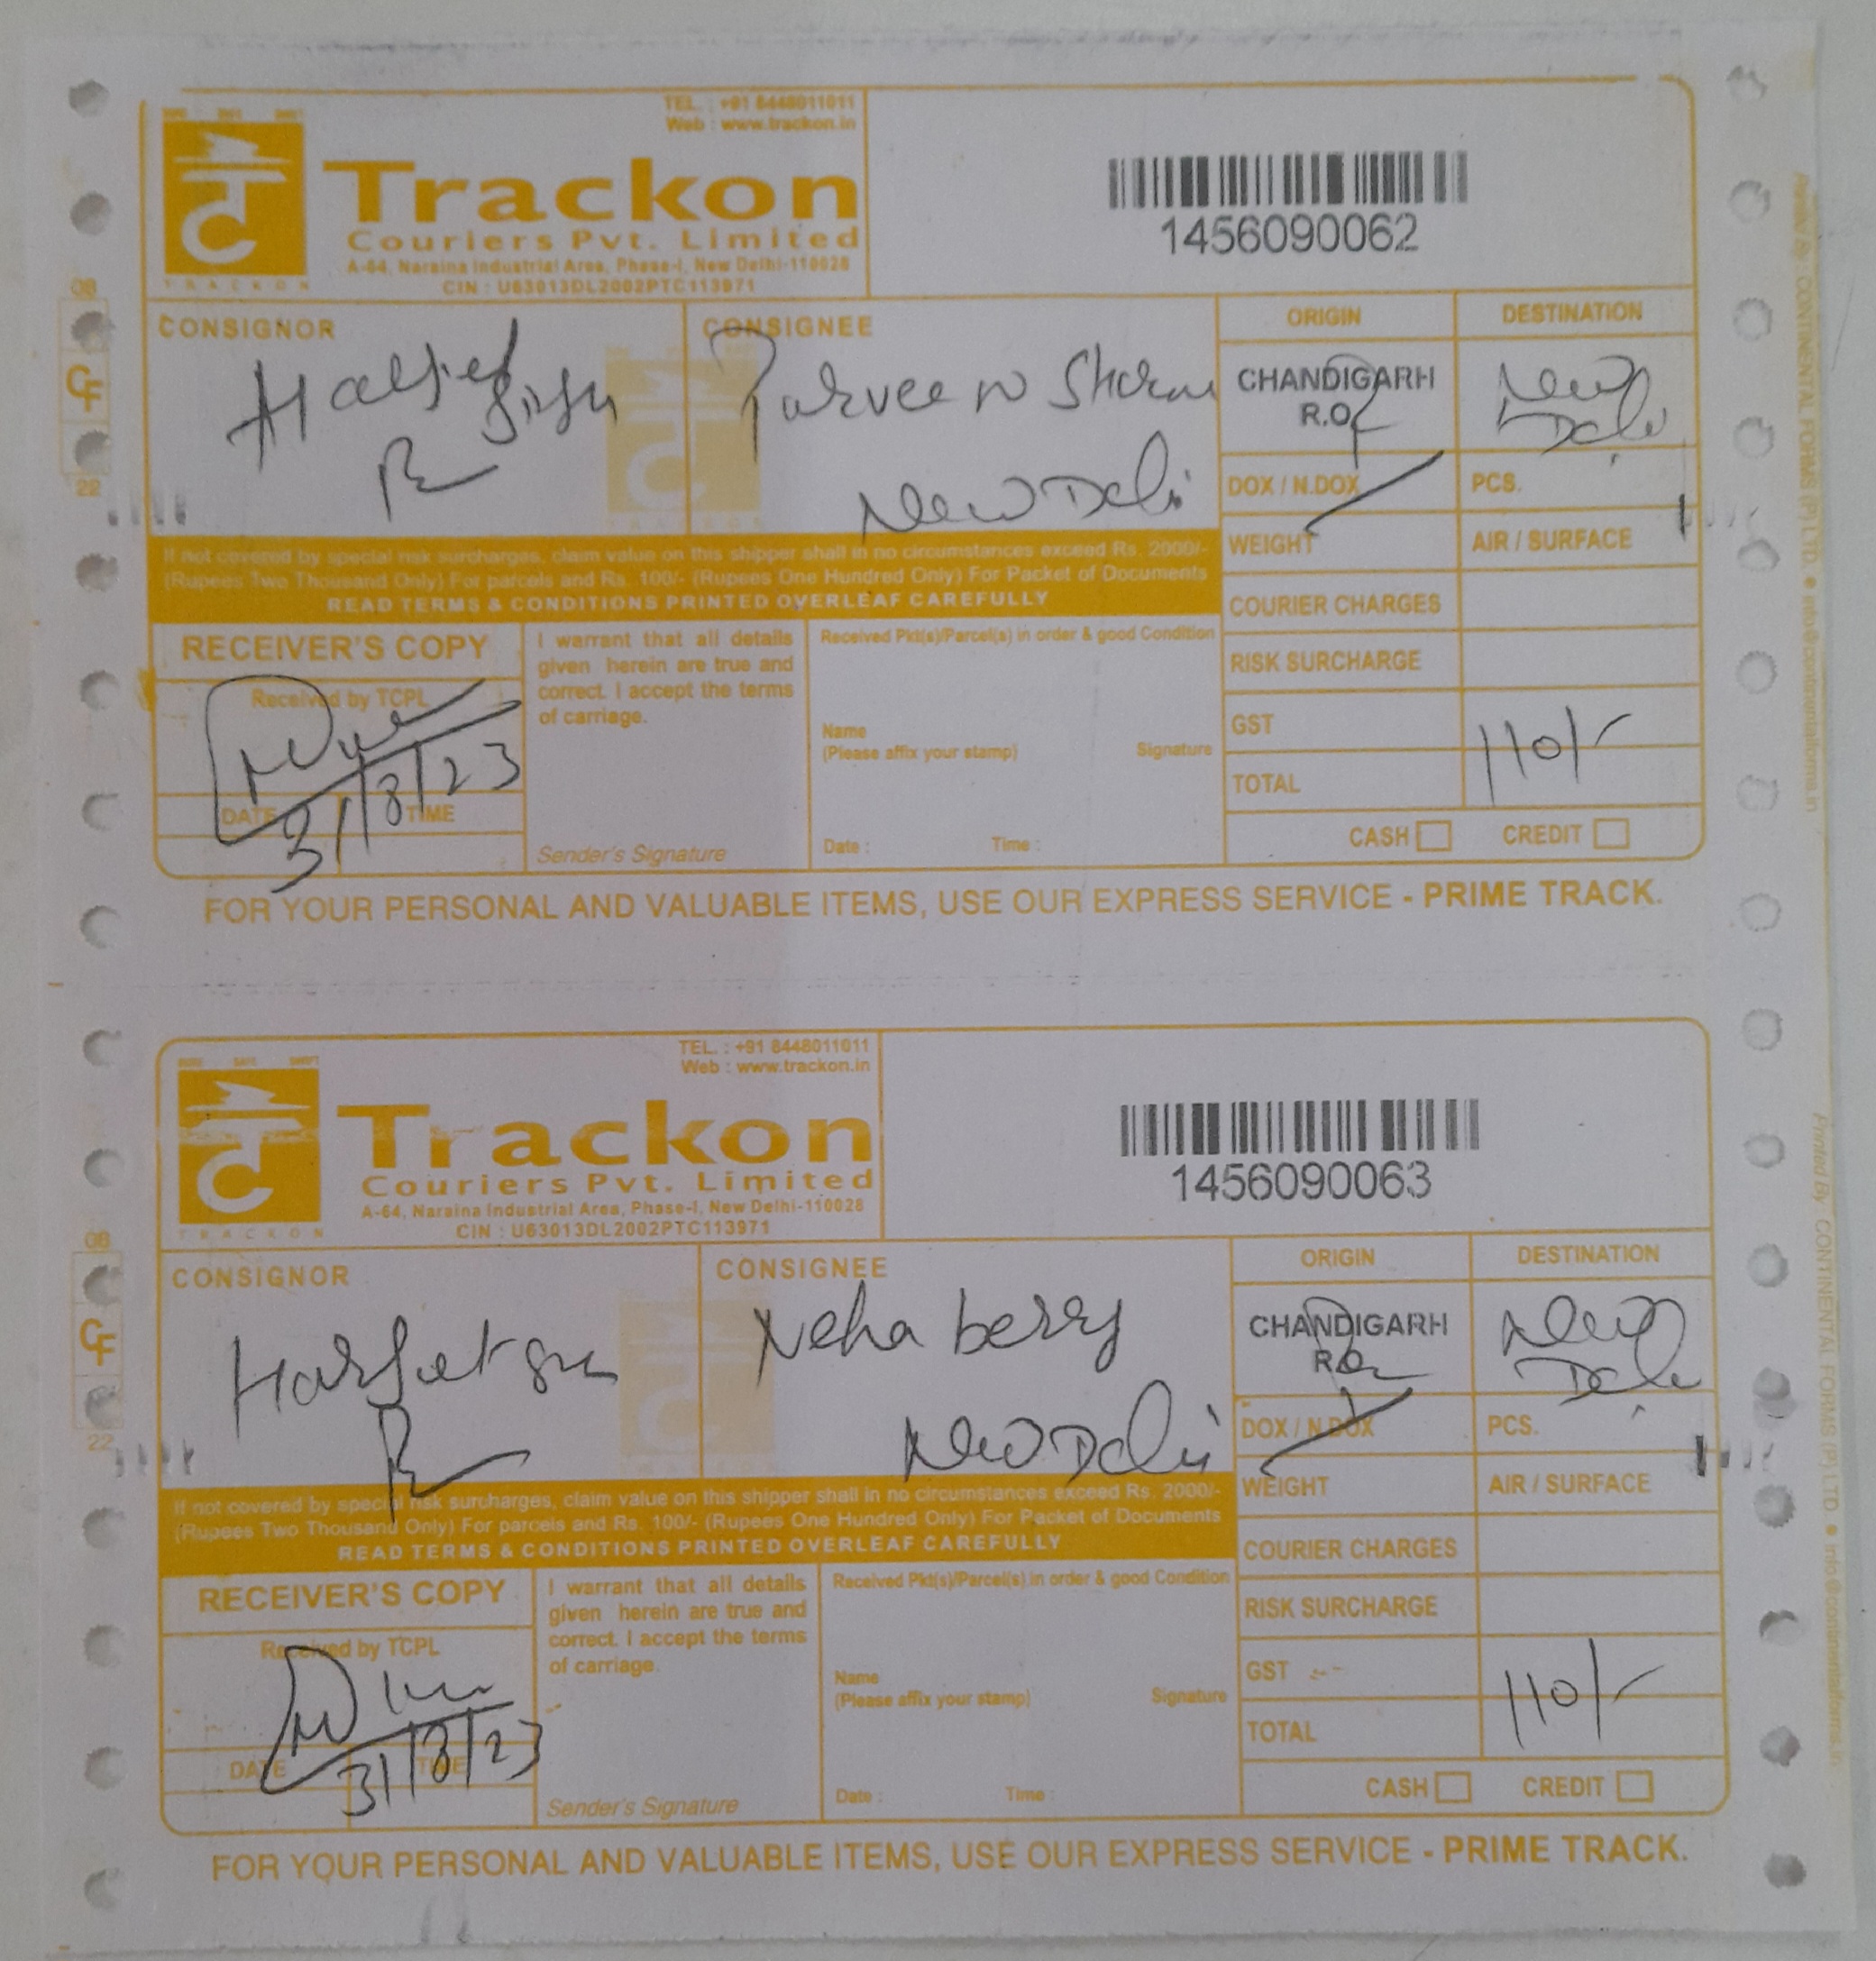 TEL. : +91 8448011011
Web : www.trackon.in
Trackon
Couriers Pvt. Limited
A-64, Naraina Industrial Area, Phase-I, New Delhi-110028
CIN : U63013DL2002PTC113971
TRACKON
1456090062
CONSIGNOR
CONSIGNEE
Parveen
New Delhi
ORIGIN
CHANDIGARH
R.O.
DESTINATION
New
Delhi
DOX / N.DOX
PCS.
WEIGHT
AIR / SURFACE
COURIER CHARGES
RISK SURCHARGE
GST
TOTAL
110/-
CASH
CREDIT
If not covered by special risk surcharges, claim value on this shipper shall in no circumstances exceed Rs. 2000/-
(Rupees Two Thousand Only) For parcels and Rs. 100/- (Rupees One Hundred Only) For Packet of Documents
READ TERMS & CONDITIONS PRINTED OVERLEAF CAREFULLY
RECEIVER'S COPY
Received by TCPL
31/8/23
DATE
TIME
I warrant that all details
given herein are true and
correct. I accept the terms
of carriage.
Sender's Signature
Received Pkt(s)/Parcel(s) in order & good Condition
Name
(Please affix your stamp)
Signature
Date :
Time :
FOR YOUR PERSONAL AND VALUABLE ITEMS, USE OUR EXPRESS SERVICE - PRIME TRACK.
08
CF
22
Printed By : CONTINENTAL FORMS (P) LTD. ● info@continentalforms.in
TEL. : +91 8448011011
Web : www.trackon.in
Trackon
Couriers Pvt. Limited
A-64, Naraina Industrial Area, Phase-I, New Delhi-110028
CIN : U63013DL2002PTC113971
TRACKON
1456090063
CONSIGNOR
CONSIGNEE
Neha berry
New Delhi
ORIGIN
CHANDIGARH
R.O.
DESTINATION
New
Delhi
DOX / N.DOX
PCS.
WEIGHT
AIR / SURFACE
COURIER CHARGES
RISK SURCHARGE
GST
TOTAL
110/-
CASH
CREDIT
If not covered by special risk surcharges, claim value on this shipper shall in no circumstances exceed Rs. 2000/-
(Rupees Two Thousand Only) For parcels and Rs. 100/- (Rupees One Hundred Only) For Packet of Documents
READ TERMS & CONDITIONS PRINTED OVERLEAF CAREFULLY
RECEIVER'S COPY
Received by TCPL
31/8/23
DATE
TIME
I warrant that all details
given herein are true and
correct. I accept the terms
of carriage.
Sender's Signature
Received Pkt(s)/Parcel(s) in order & good Condition
Name
(Please affix your stamp)
Signature
Date :
Time :
FOR YOUR PERSONAL AND VALUABLE ITEMS, USE OUR EXPRESS SERVICE - PRIME TRACK.
08
CF
22
Printed By : CONTINENTAL FORMS (P) LTD. ● info@continentalforms.in